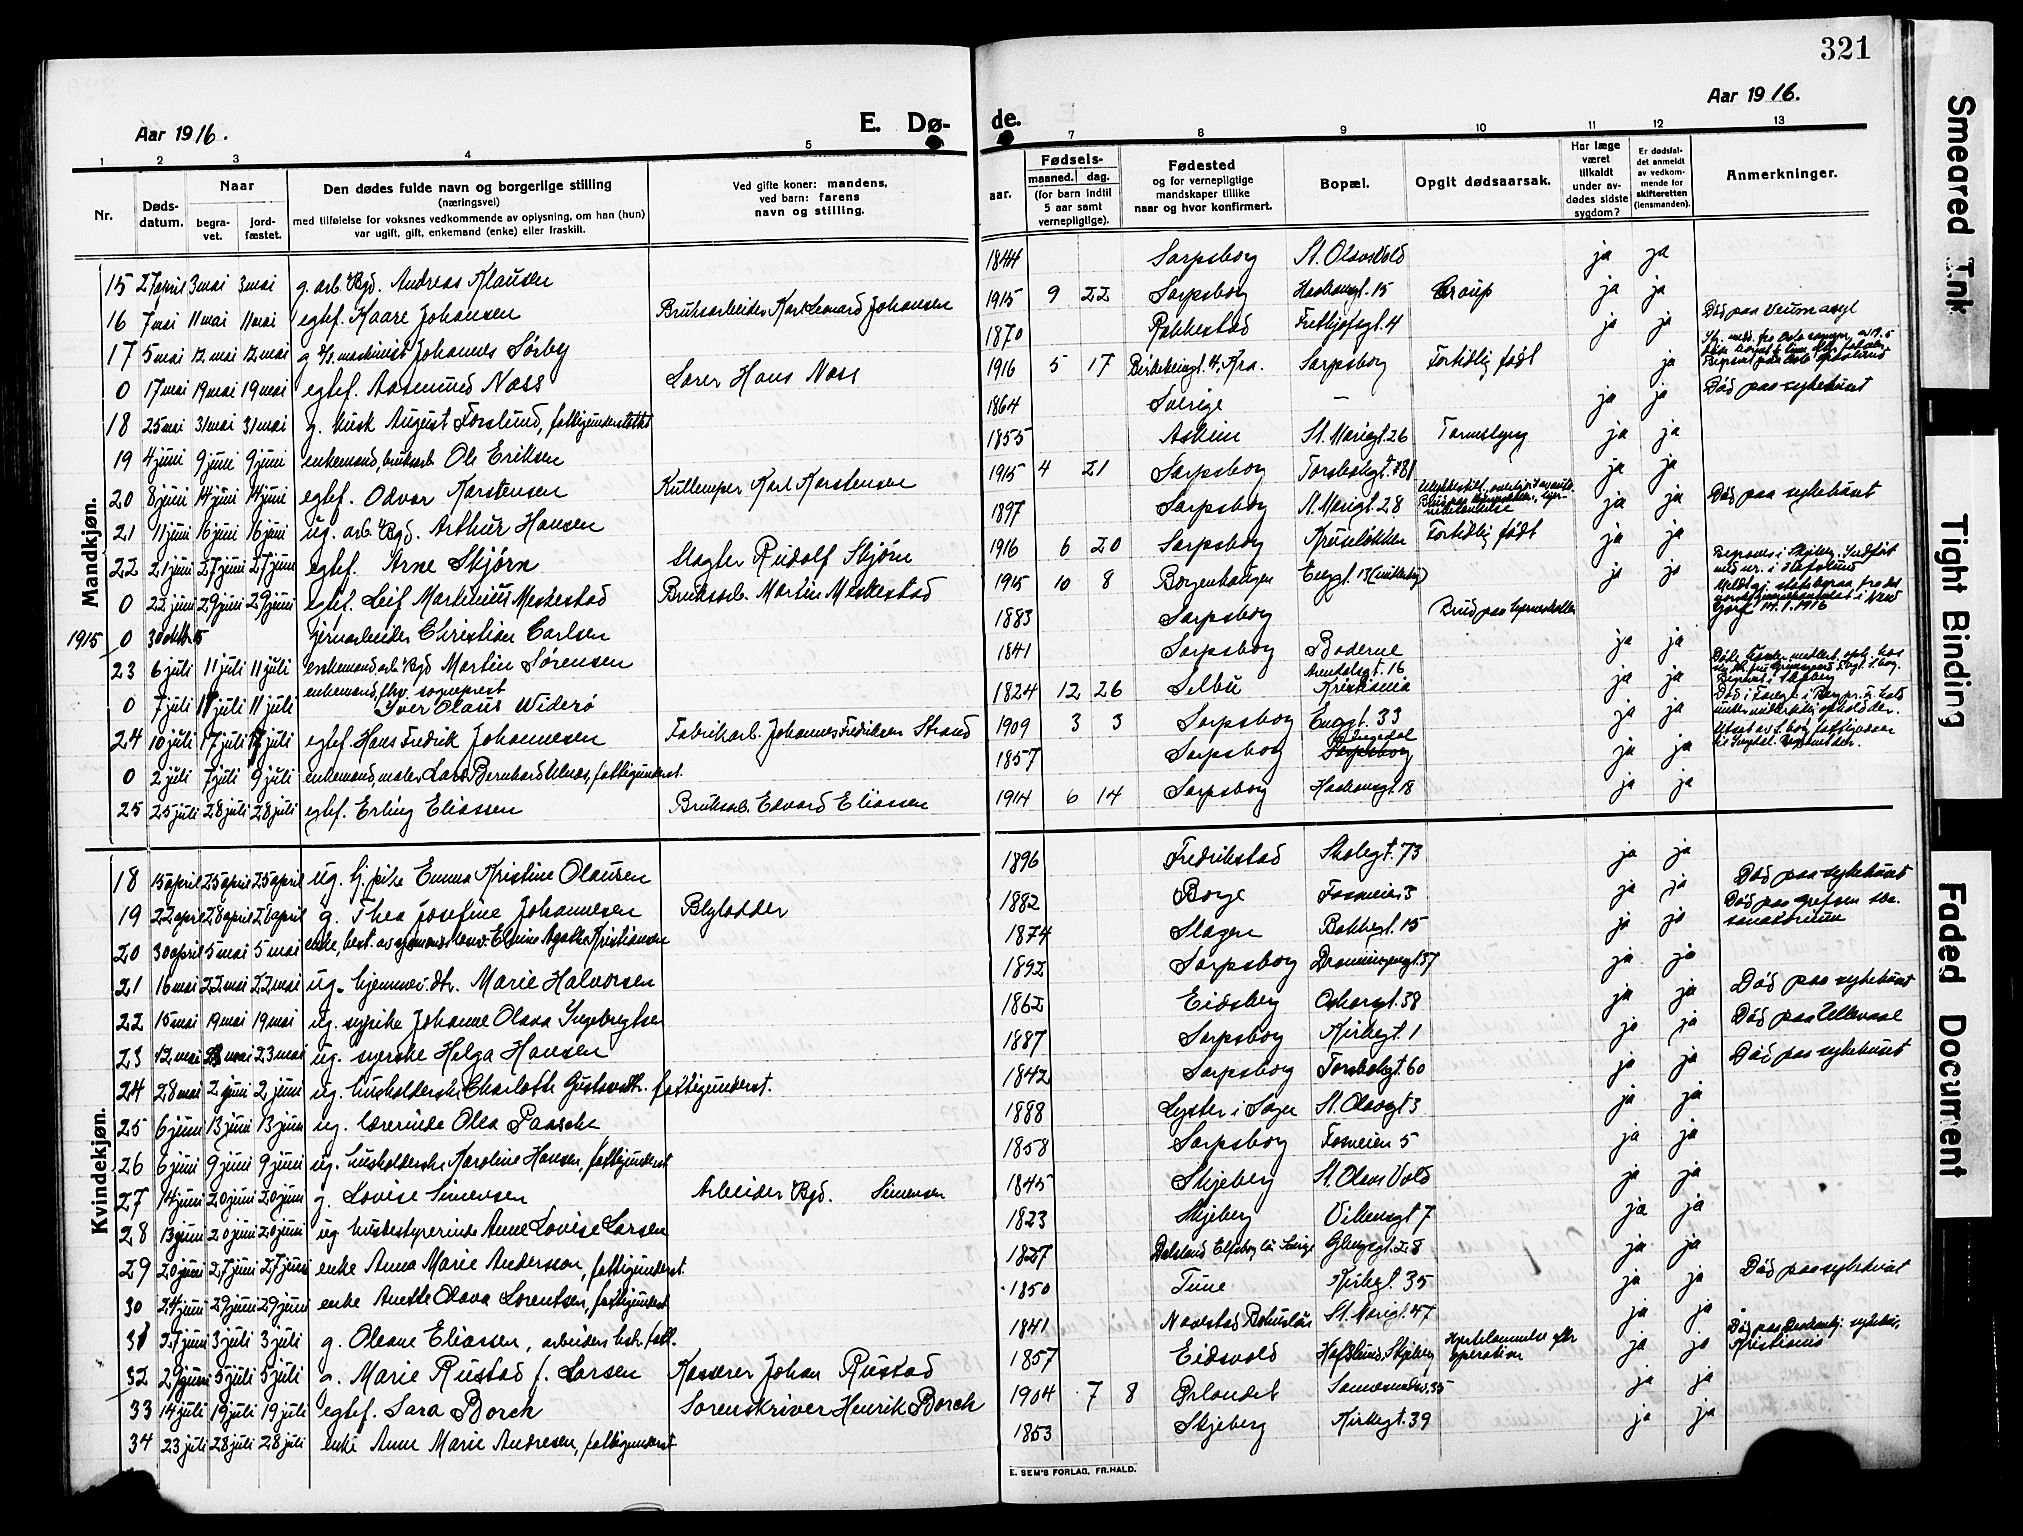 321
Aar 1916.
E. Dø-
de.
Aar 1916.
1 2 3 4 5 7 8 9 10 11 12 13
Nr.
Døds-
datum.
Naar
begra-
vet.
jord-
fæstet.
Den dødes fulde navn og borgerlige stilling
(næringsvei)
med tilføielse for voksnes vedkommende av oplysning, om han (hun)
var ugift, gift, enkemand (enke) eller fraskilt.
Ved gifte koner: mandens,
ved barn: farens
navn og stilling.
aar.
Fødsels-
maaned. dag.
(for barn indtil
5 aar samt
vernepligtige).
Fødested
og for vernepligtige
mandskaper tillike
naar og hvor konfirmert.
Bopæl.
Opgit dødsaarsak.
Har læge
været
tilkaldt
under av-
dødes sidste
sygdom?
Er dødsfal-
det anmeldt
av vedkom-
mende for
skifteretten
(lensmanden).
Anmerkninger.
Mandkjøn.
15 27 april 3 mai 3 mai g. arb. Bgd. Andreas Klausen 1844 Sarpsborg St. Olavs Vold ja ja
16 7 mai 11 mai 11 mai egtef. Kaare Johansen Bruksarbeider Karl Leonard Johansen 1915 9 22 Sarpsborg Haakonsgt. 15 Croup ja ja
17 5 mai 12 mai 12 mai g. maskinist Johannes Sørby 1870 Rakkestad Fritjofsgt. 4 ja ja Død paa Veum asyl
0 17 mai 19 mai 19 mai egtef. Aasmund Næss Lærer Hans Næss 1916 5 17 Birkebeingt. 4, Kra. Sarpsborg Fortidlig født ja
18 25 mai 31 mai 31 mai g. kusk August Forslund, fattigunderstøttet 1864 Sverige — ja ja Død paa sykehuset
19 4 juni 9 juni 9 juni enkemand, bruksarb. Ole Eriksen 1855 Askim St. Mariegt. 26 Tarmslyng ja ja
20 8 juni 14 juni 14 juni egtef. Odvar Karstensen Kullemper Karl Karstensen 1915 4 21 Sarpsborg Torsbekgt. 81 ja ja
21 11 juni 16 juni 16 juni ug. arb. Bgd. Arthur Hansen 1897 Sarpsborg St. Mariegt. 28 ja ja Død paa sykehuset
22 21 juni 27 juni 27 juni egtef. Arne Skjørn Slagter Rudolf Skjørn 1916 6 20 Sarpsborg Kruseløkken Fortidlig født ja ja
0 22 juni 29 juni 29 juni egtef. Leif Martinius Meskestad Bruksarb. Martin Meskestad 1915 10 8 Borgenhaugen Enggt. 13 ja ja
1915 0 30 oktbr. 15 jernarbeider Christian Carlsen 1883 Sarpsborg Brud paa hjerneskallen
23 6 juli 11 juli 11 juli enkemand arb. Bgd Martin Sørensen 1841 Sarpsborg Boderne ja ja
0 7 juli 11 juli 11 juli enkemand, fhv. sogneprest
Iver Olaus Widerø 1824 12 26 Selbu Arendalsgt. 16
Kristiania ja ja
24 10 juli 17 juli 17 juli egtef. Hans Fredrik Johannesen Fabrikarb. Johannes Fredriksen Strand 1909 3 3 Sarpsborg Enggt. 33 ja ja
0 2 juli 7 juli 9 juli enkemand, maler Lars Bernhard Ulnes, fattigunderst. 1857 Sarpsborg Ingedal
Sarpsborg ja ja
25 25 juli 28 juli 28 juli egtef. Erling Eliassen Bruksarb. Edvard Eliassen 1914 6 14 Sarpsborg Haakonsgt. 18 ja ja
Kvindekjøn.
18 15 april 25 april 25 april ug. tj. pike Emma Kristine Olausen 1896 Fredrikstad Skolegt. 73 ja ja Død paa sykehuset
19 22 april 28 april 28 april g. Thea Josefine Johannesen Blylodder 1882 Borge Fosveien 3 ja ja Død paa Grefsen
sanatorium
20 30 april 5 mai 5 mai enke, Elvine Agathe Kristiansen 1874 Slagen Bakkegt. 15 ja ja
21 16 mai 22 mai 22 mai ug. hjemmev. dtr. Marie Halvorsen 1892 Sarpsborg Dronningensgt. 37 ja ja Død paa sykehuset
22 15 mai 19 mai 19 mai ug. sypike Johanne Olava Ingebregtsen 1862 Eidsberg Oskarsgt. 38 ja ja Død paa Ullevaal
23 12 mai 23 mai 23 mai ug. syerske Helga Hansen 1887 Sarpsborg Kirkegt. 1 ja ja Død paa sykehuset
24 28 mai 2 juni 2 juni ug. husholdersk. Charlotte Gustavsdtr. fattigunderst. 1842 Sarpsborg Torsbekgt. 60 ja ja
25 6 juni 13 juni 13 juni ug. lærerinde Olea Paasche 1888 Lyster i Sogn St. Olavsgt 3 ja ja
26 6 juni 9 juni 9 juni ug. husholdersk. Karoline Hansen, fattigunderst 1858 Sarpsborg Fosveien 5 ja ja
27 14 juni 20 juni 20 juni g. Lovise Simensen Arbeider Bgd. Simensen 1845 Skjeberg St. Olavs Vold ja ja
28 13 juni 20 juni 20 juni ug husbestyrerinde Anne Lovise Larsen 1823 Skjeberg Vikensgt 7 ja ja
29 20 juni 27 juni 27 juni enke Anna Marie Andersson, fattigunderst. 1827 Dalsland Elfsborg län Sverige Glengsgt. 28 ja ja
30 24 juni 29 juni 29 juni enke Anette Olava Lorentsen, fattigunderst 1850 Tune Kirkegt. 35 ja ja Død paa sykehuset
31 27 juni 3 juli 3 juli g. Oleane Eliassen, arbeiders hstr. fatt. 1841 Naverstad Bohuslän St. Mariegt. 47 ja ja
32 29 juni 5 juli 5 juli g. Marie Rustad f. Larsen Kasserer Johan Rustad 1857 Eidsvold Hafslund, Skjeberg Hjertelammelse efter
operation ja ja Kristiania
33 14 juli 19 juli 19 juli egtef. Sara Borch Sorenskriver Henrik Borch 1904 7 8 Ørlandet Sannesundsv. 35 ja ja
34 23 juli 28 juli 28 juli enke Anne Marie Andresen, fattigunderst 1853 Skjeberg Kirkegt. 39 ja ja
E. SEM'S FORLAG, FR.HALD.
Smeared Ink
Tight Binding
Faded Document